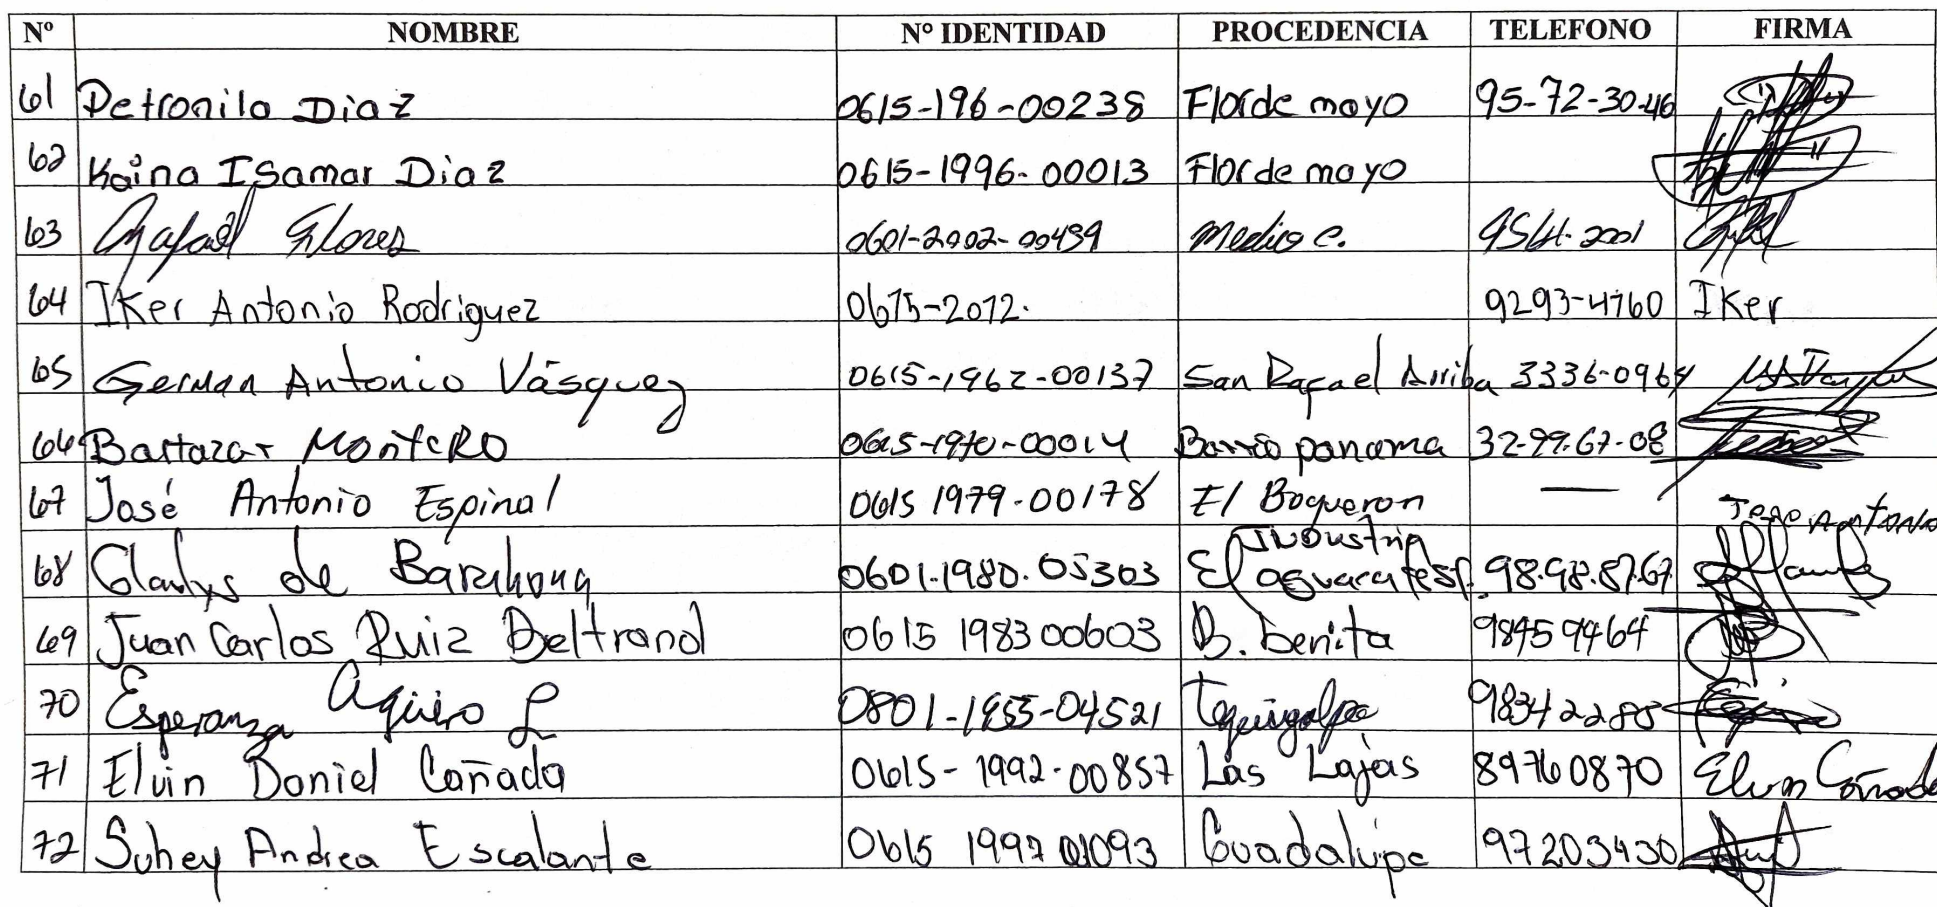 Nº NOMBRE Nº IDENTIDAD PROCEDENCIA TELEFONO FIRMA
61 Petronilo Diaz 0615-196-00238 Flor de mayo 95-72-30-46
62 Kaina Isamar Diaz 0615-1996-00013 Flor de mayo
63 Rafael Flores 0601-2002-00439 Medico C.
64 Iker Antonio Rodriguez 0615-2012. 9293-4760 Iker
65 German Antonio Vásquez 0615-1962-00137 San Rafael Arriba 3336-0964
66 Bartazar Montero 0615-1970-00014 Barrio panama 32-99-67-08
67 José Antonio Espinal 0615 1979-00178 El Boqueron — Jose Antonio
68 Gladys de Barahona 0601-1980-05303 Industria El 98-98-87-67
69 Juan Carlos Ruiz Beltrand 0615 1983 00603 B. benita 98459464
70 Esperanza Agüero L 0801-1955-04521 Teguigalpa 98342288
71 Elvin Daniel Cañada 0615-1992-00857 Las Lajas 89760870 Elvin Cañada
72 Suhey Andrea Escalante 0615 1997 01093 Guadalupe 97203430